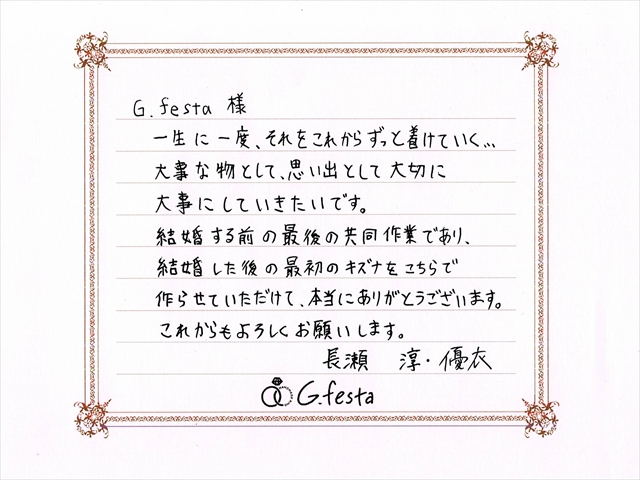 G.festa 様
一生に一度、それをこれからずっと着けていく...
大事な物として、思い出として大切に
大事にしていきたいです。
結婚する前の最後の共同作業であり、
結婚した後の最初のキズナをこちらで
作らせていただけて、本当にありがとうございます。
これからもよろしくお願いします。
長瀬 淳・優衣
G.festa